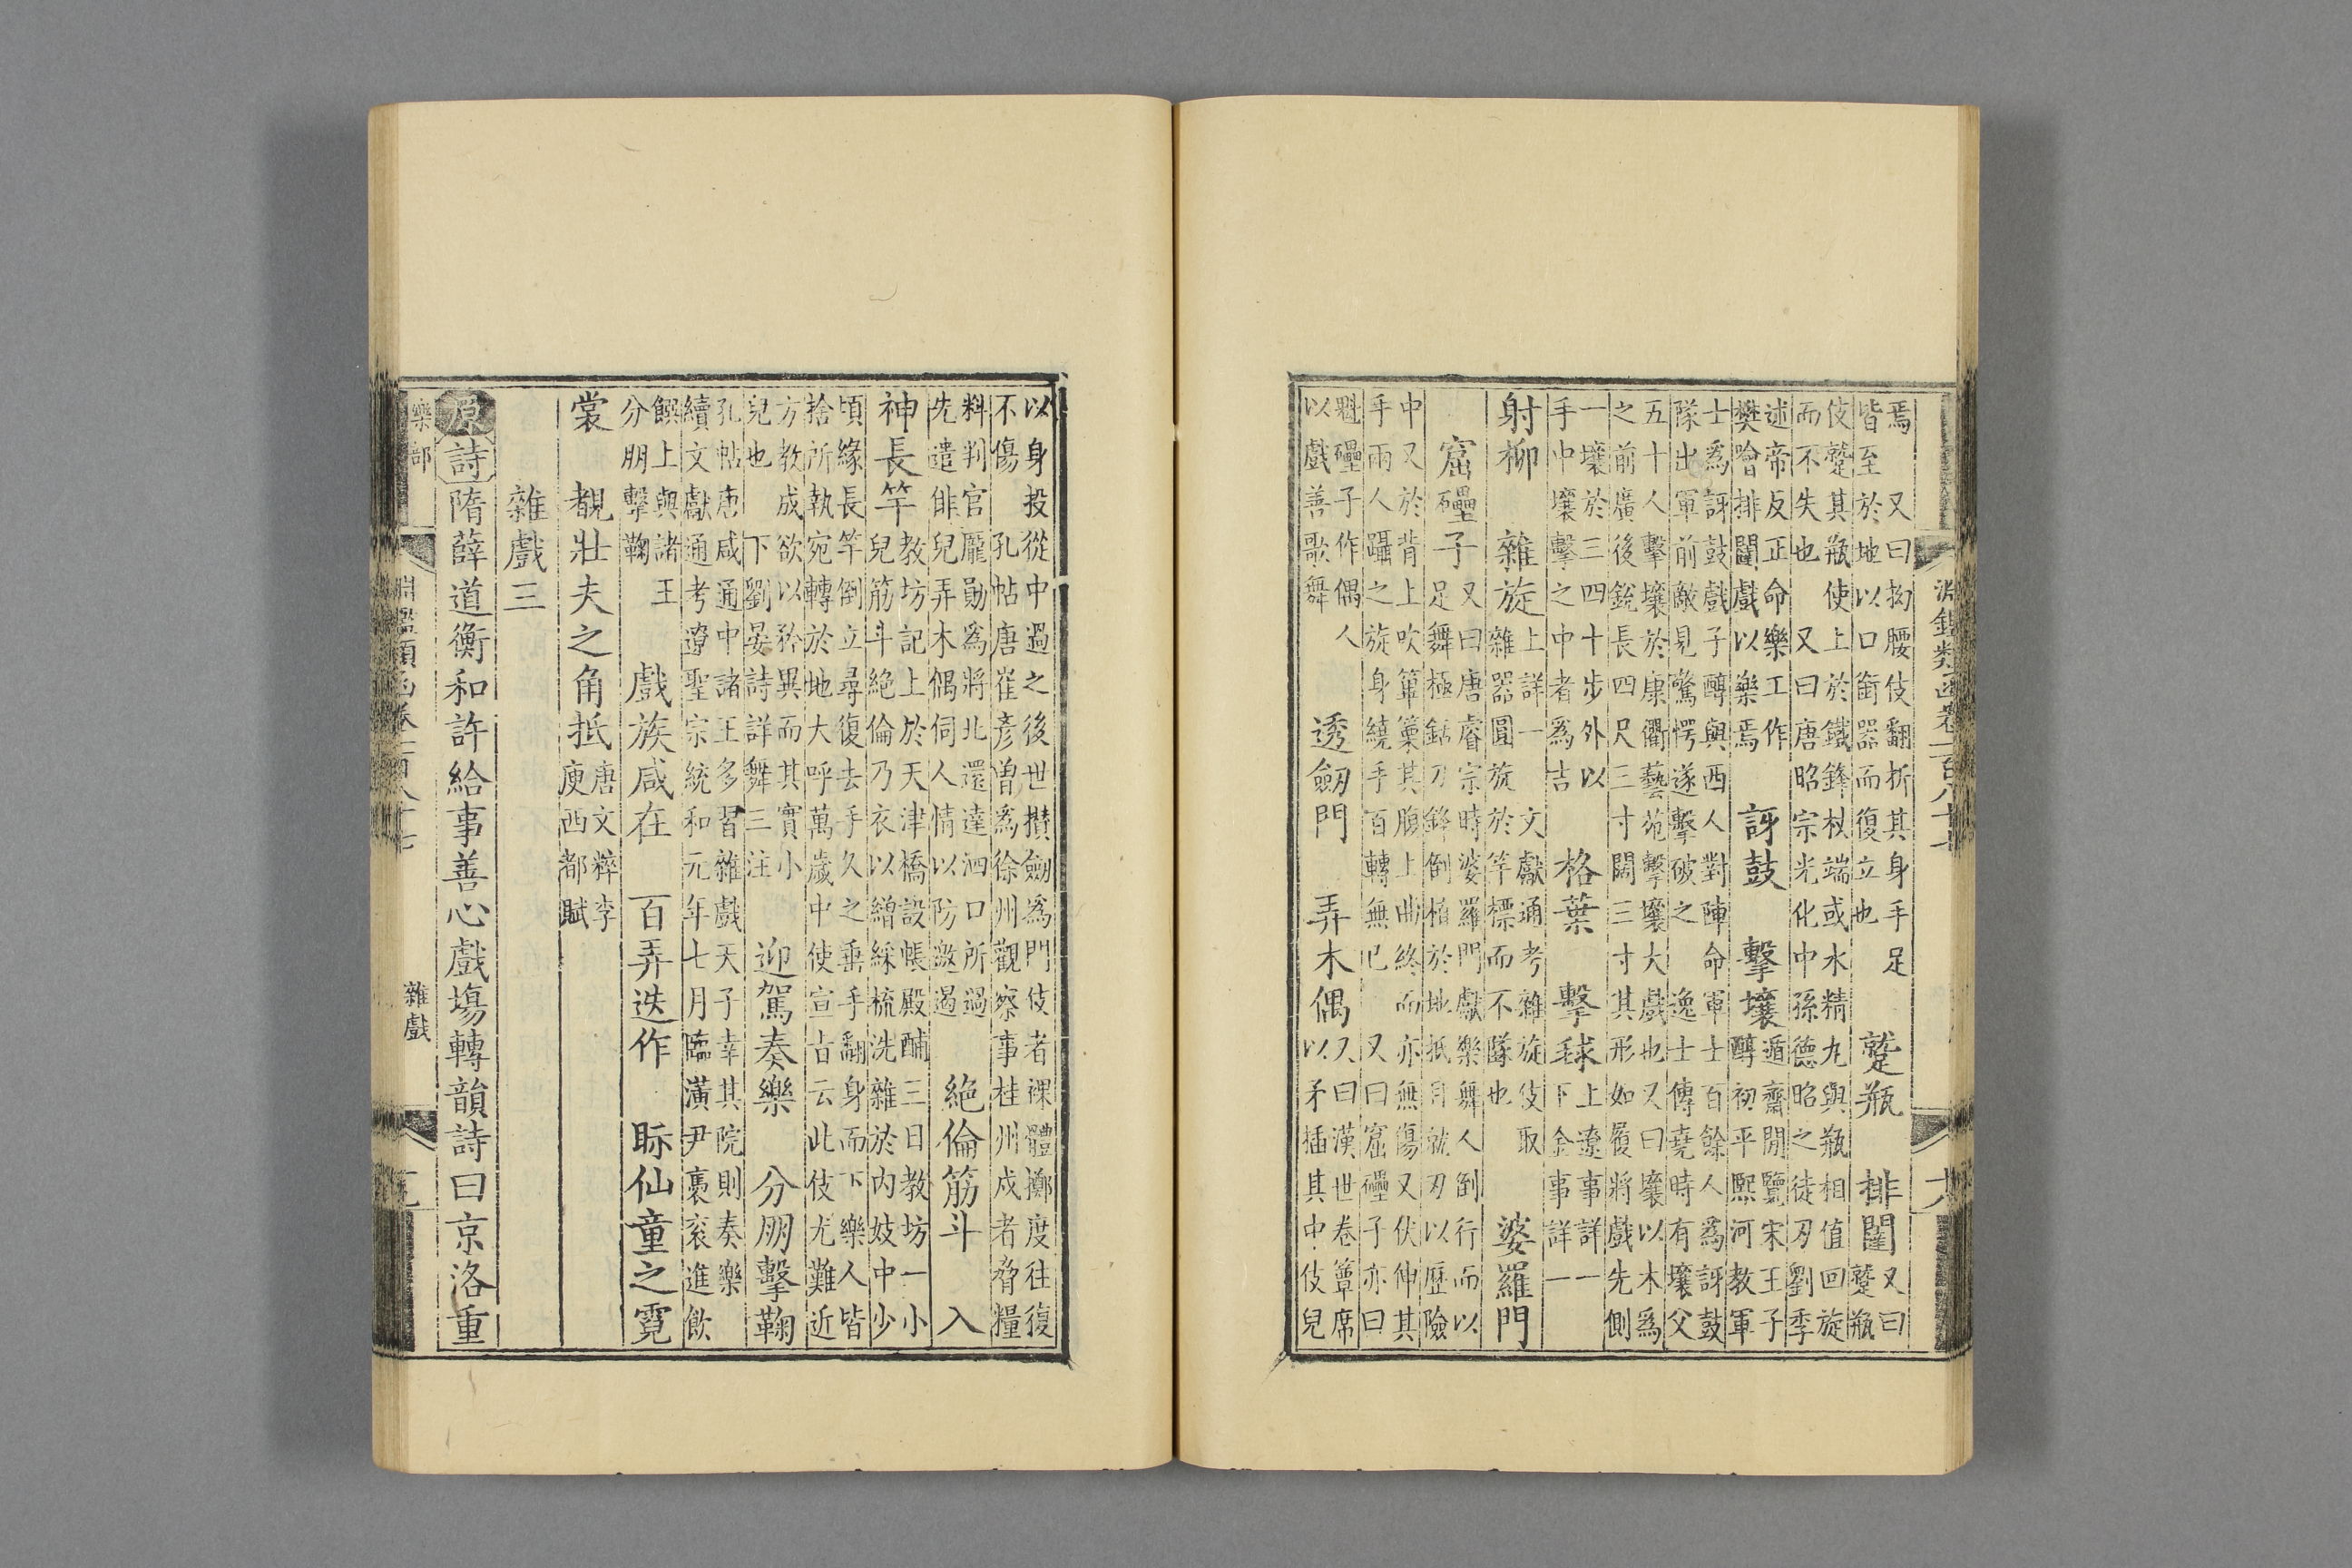 淵鑑類函卷一百八十七
焉 又曰拗腰伎翻折其身手足
皆至於地以口銜器而復立也
蹵瓶 排闥
又曰
蹵瓶
伎蹵其瓶使上於鐵鋒杖端或水精丸與瓶相值回旋
而不失也 又曰唐昭宗光化中孫德昭之徒刃劉季
述帝反正命樂工作
樊噲排闥戲以樂焉
訝鼓 擊壤
遁齋閒覽宋王子
醇初平熙河教軍
士為訝鼓戲子醇與西人對陣命軍士百餘人為訝鼓
隊出軍前敵見驚愕遂擊破之 逸士傳堯時有壤父
五十人擊壤於康衢藝苑擊壤大戲也又曰壤以木為
之前廣後銳長四尺三寸闊三寸其形如履將戲先側
一壤於三四十步外以
手中壤擊之中者為吉
格葉 擊球
上遼事詳一
下金事詳一
射柳 雜旋
上詳一 文獻通考雜旋伎取
雜器圓旋於竿標而不墜也
婆羅門
窟礧子
又曰唐睿宗時婆羅門獻樂舞人倒行而以
足舞極銛刀鋒倒植於地抵目就刃以歷險
中又於背上吹篳篥其腹上曲終而亦無傷又伏伸其
手兩人躡之旋身繞手百轉無已 又曰窟礧子亦曰
魁礧子作偶人
以戲善歌舞
透劒門 弄木偶
又曰漢世卷簟席
以矛插其中伎兒
以身投從中過之後世攢劒為門伎者裸體擲度往復
不傷 孔帖唐崔彥曾為徐州觀察事桂州戍者脅糧
料判官龐勛為將北還達泗口所過
先遣俳兒弄木偶伺人情以防邀遏
絕倫筋斗 入
神長竿
教坊記上於天津橋設帳殿酺三日教坊一小
兒筋斗絕倫乃衣以繒綵梳洗雜於內妓中少
頃緣長竿倒立尋復去手久之垂手翻身而下樂人皆
捨所執宛轉於地大呼萬歲中使宣旨云此伎尤難近
方教成欲以矜異而其實小
兒也 下劉晏詩詳舞三注
迎駕奏樂 分朋擊鞠
孔帖唐咸通中諸王多習雜戲天子幸其院則奏樂
續文獻通考遼聖宗統和元年七月臨潢尹褭袞進飲
饌上與諸王
分朋擊鞠
戲族咸在 百弄迭作 眎仙童之霓
裳 覩壯夫之角抵
唐文粹李
庾西都賦
雜戲三
原詩隋薛道衡和許給事善心戲場轉韻詩曰京洛重
樂部 淵鑑類函卷一百八十七 雜戲